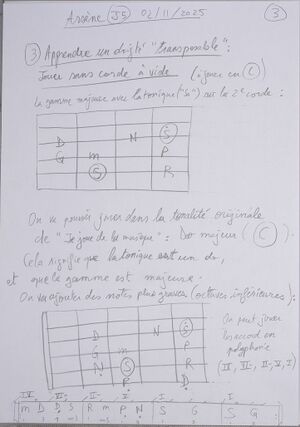 Arsène (J5) 02/11/2025 (3)
(3) Apprendre un doigté "transposable" :
Jouer sans corde à vide (jouer en (C))
La gamme majeure avec la tonique ("S") sur la 2e corde :
D N (S)
G m P
(S) R
On va pouvoir jouer dans la tonalité originale
de "Je joue de la musique" : Do majeur ((C)).
Cela signifie que la tonique est un do,
et que la gamme est majeure.
On va ajouter des notes plus graves (octaves inférieures) :
D N (S)
G m P
N (S) R
P R D
On peut jouer
les accord en
polyphonie
m D D S R m P N S G S G